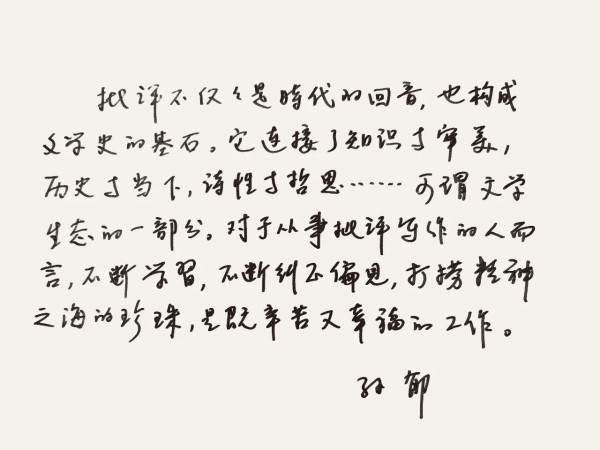 批评不仅々是時代的回音，也构成
文学史的基石。它连接了知识与审美，
历史与当下，诗性与哲思……可谓文学
生态的一部分。对于从事批评写作的人而
言，不断学習，不断纠正偏见，打捞精神
之海的珍珠，是既辛苦又幸福的工作。
孙郁